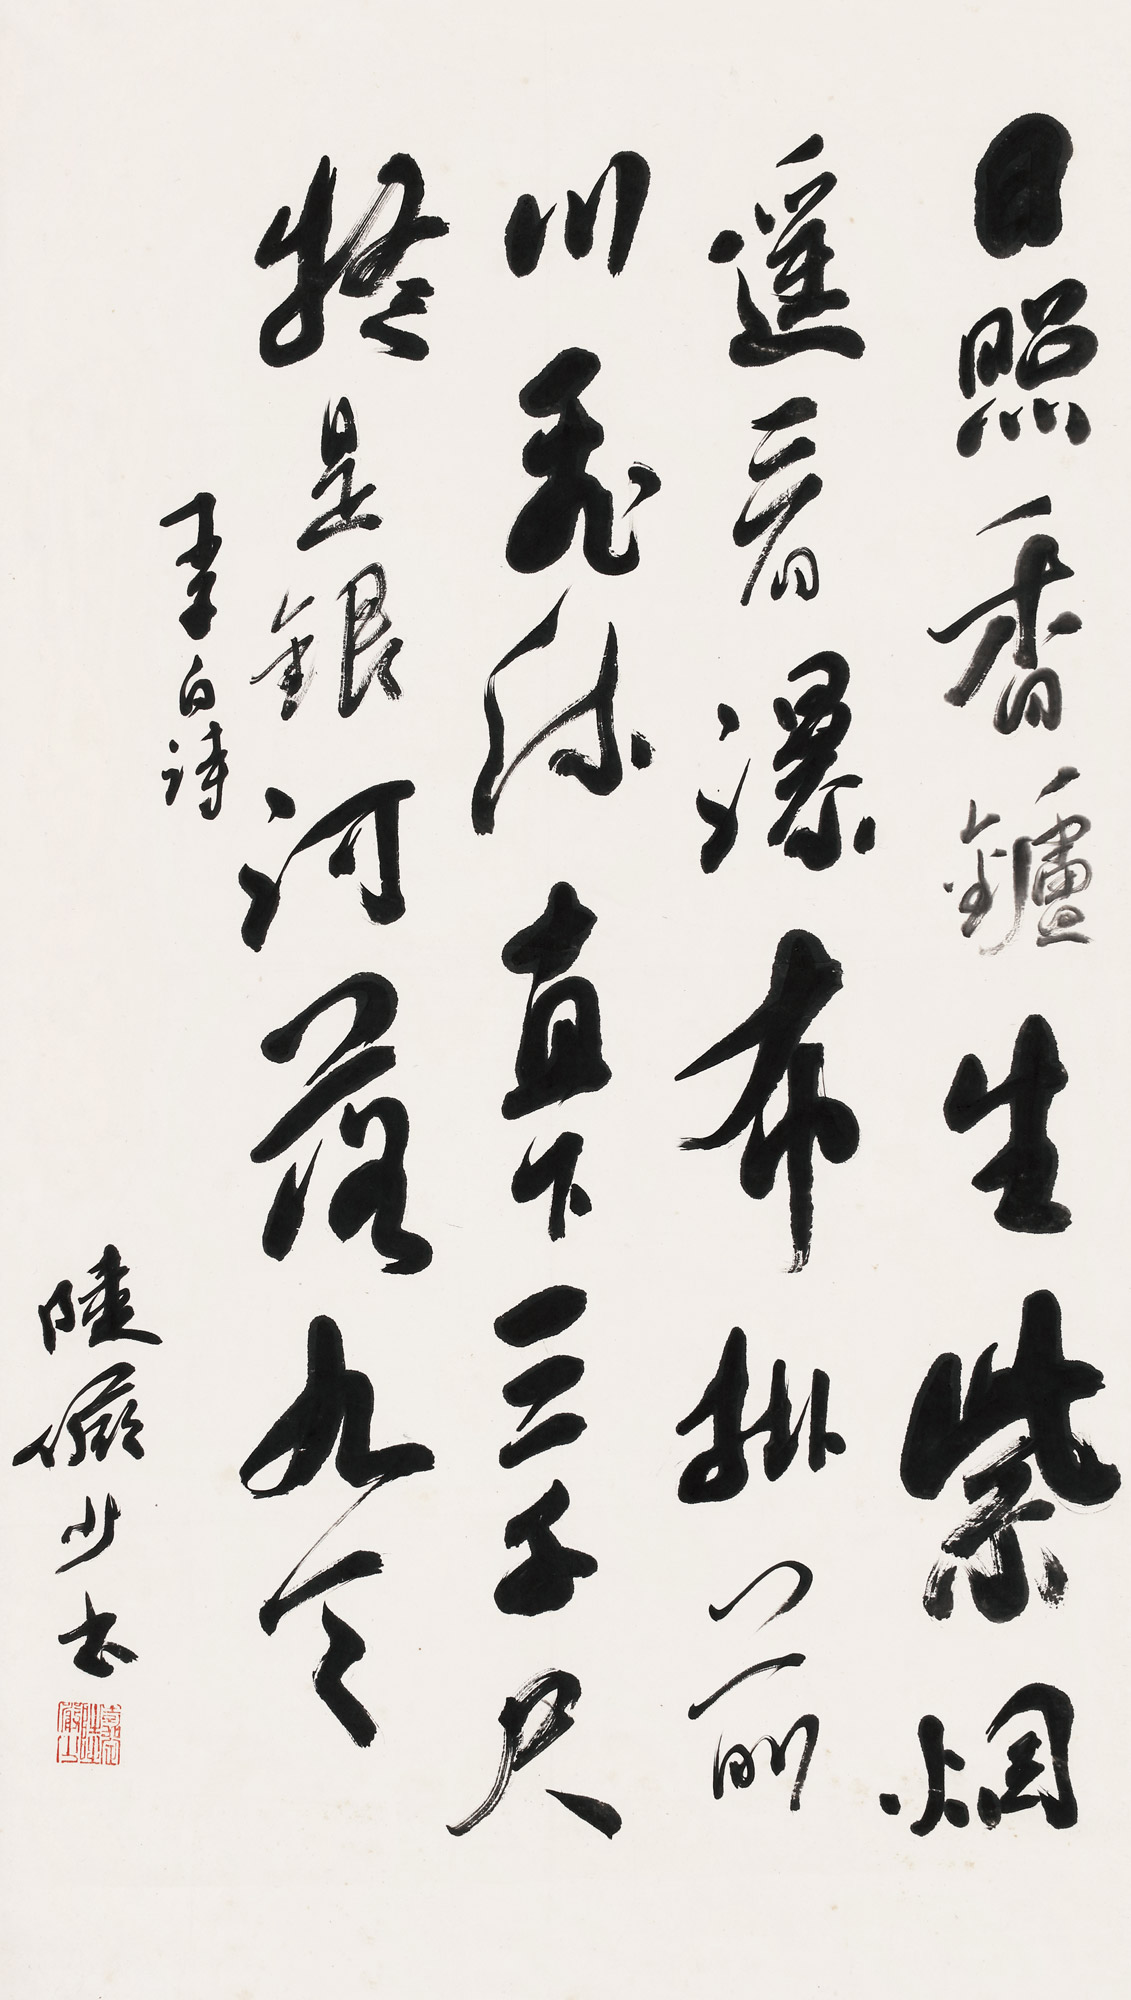 日照香鑪生紫烟
遥看瀑布掛前
川飛流直下三千尺
疑是銀河落九天
李白詩
陸儼少書